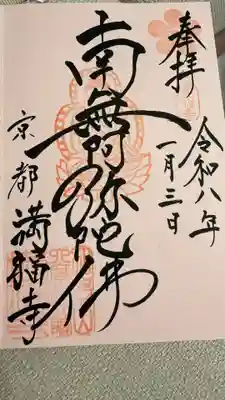 奉拝
令和八年
一月三日
南無阿弥陀佛
京都
満福寺